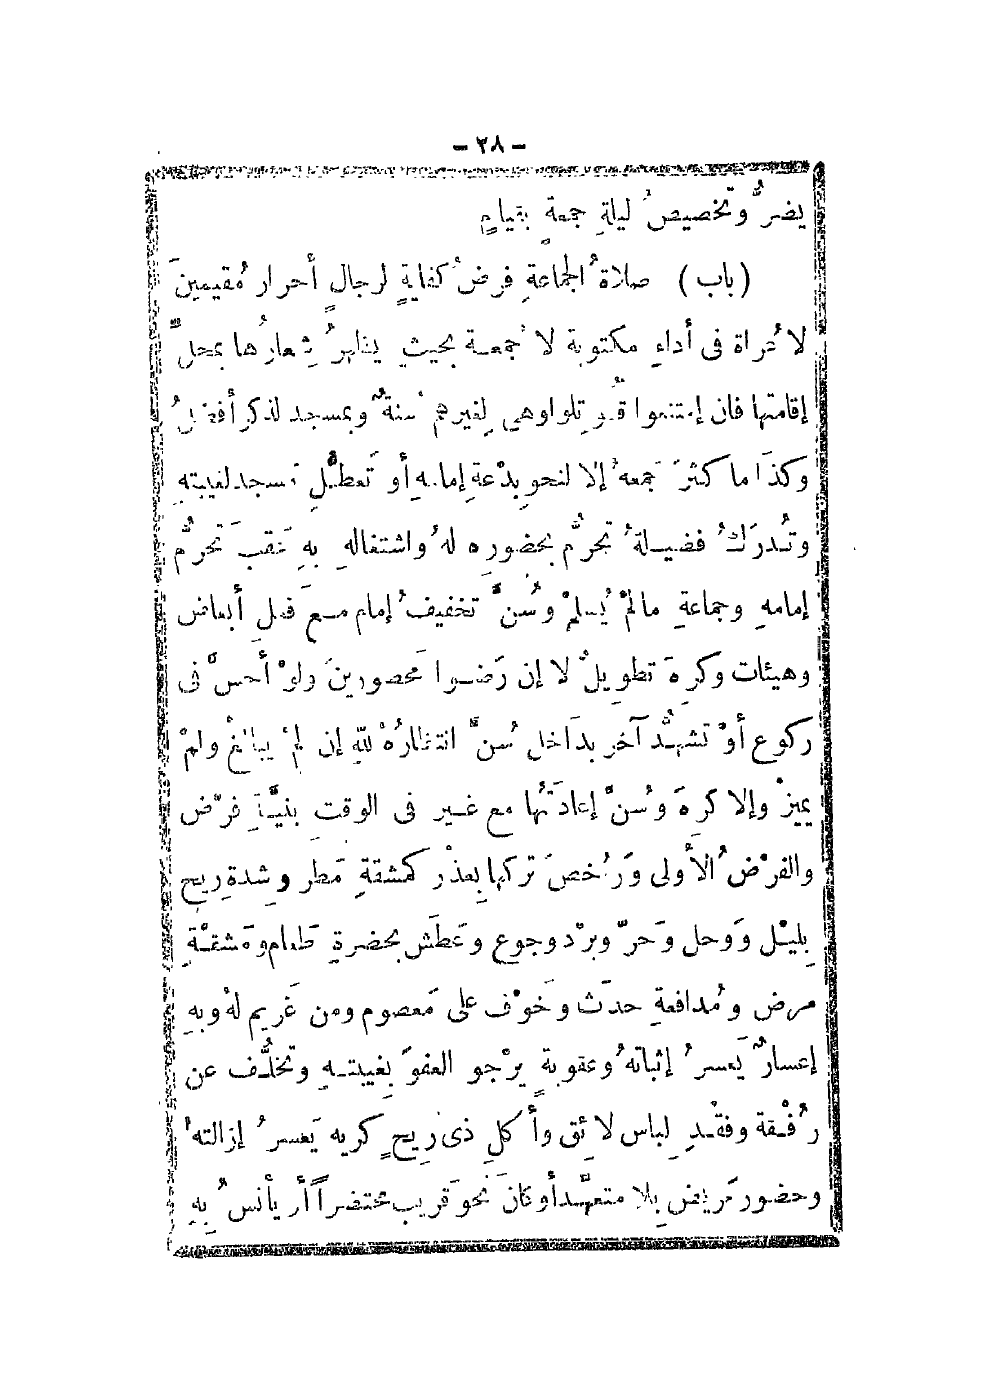 - ٢٨ -
يضرُّ وتخصيصُ ليلةِ جمعةٍ بقيامٍ
(باب) صلاةُ الجماعةِ فرضُ كفايةٍ لرجالٍ أحرار مُقيمينَ
لا عُراة فى أداءِ مكتوبة لا جُمعة بحيث يظهرُ شِعارُها بمحلِّ
إقامتها فان إمتنعوا قُوتِلوا وهى لِغيرهم سُنةٌ وبمسجد لذكر أفضلُ
وكذَا ما كثُرَ جمعهُ إلا لنحو بِدْعةِ إمامهِ أو تَعطُّلِ مسجد لغيبتهِ
وتُدرَكُ فضيلةُ تحرُّم بحضورِه لهُ واشتغالهِ بهِ عَقبَ تحرُّم
إمامهِ وجماعةِ مالمْ يُسلمْ وسُنَّ تخفيفُ إمام مع فعلِ أبعاض
وهيئات وكرِهَ تطويلٌ لا إن رَضُوا مَحصورينَ ولوْ أحسَّ فى
ركوع أوْ تشهُّد آخر بدَاخل سُنَّ انتظارُهُ للهِ إن لمْ يبالغْ ولمْ
يميزْ وإلا كرِهَ وسُنَّ إعادَتُها مع غير فى الوقتِ بنيَّةِ فرْض
والفرْضُ الأولى وَرُخصَ تركها بِعذْر كمشقةِ مَطر وشِدةِ ريحٍ
بِليْل وَوحل وحَرّ وبرْد وجوع وعَطَش بحضرةِ طَعام ومَشقةِ
مرض ومُدافعةِ حدَث وخَوْف على مَعصوم ومن غَريم لهُ وبهِ
إعسارٌ يَعسرُ إثباتهُ وعقوبةٍ يرْجو العفوَ بِغيبتهِ وتخلُّف عن
رُفْقة وفقْدِ لِباس لائق وأكلِ ذى رِيحٍ كريه يَعسرُ إزالتهُ
وحضور مَريض بِلا متعهِّد أو كانَ نحوَ قريب محتضراً أو يأنسُ بهِ